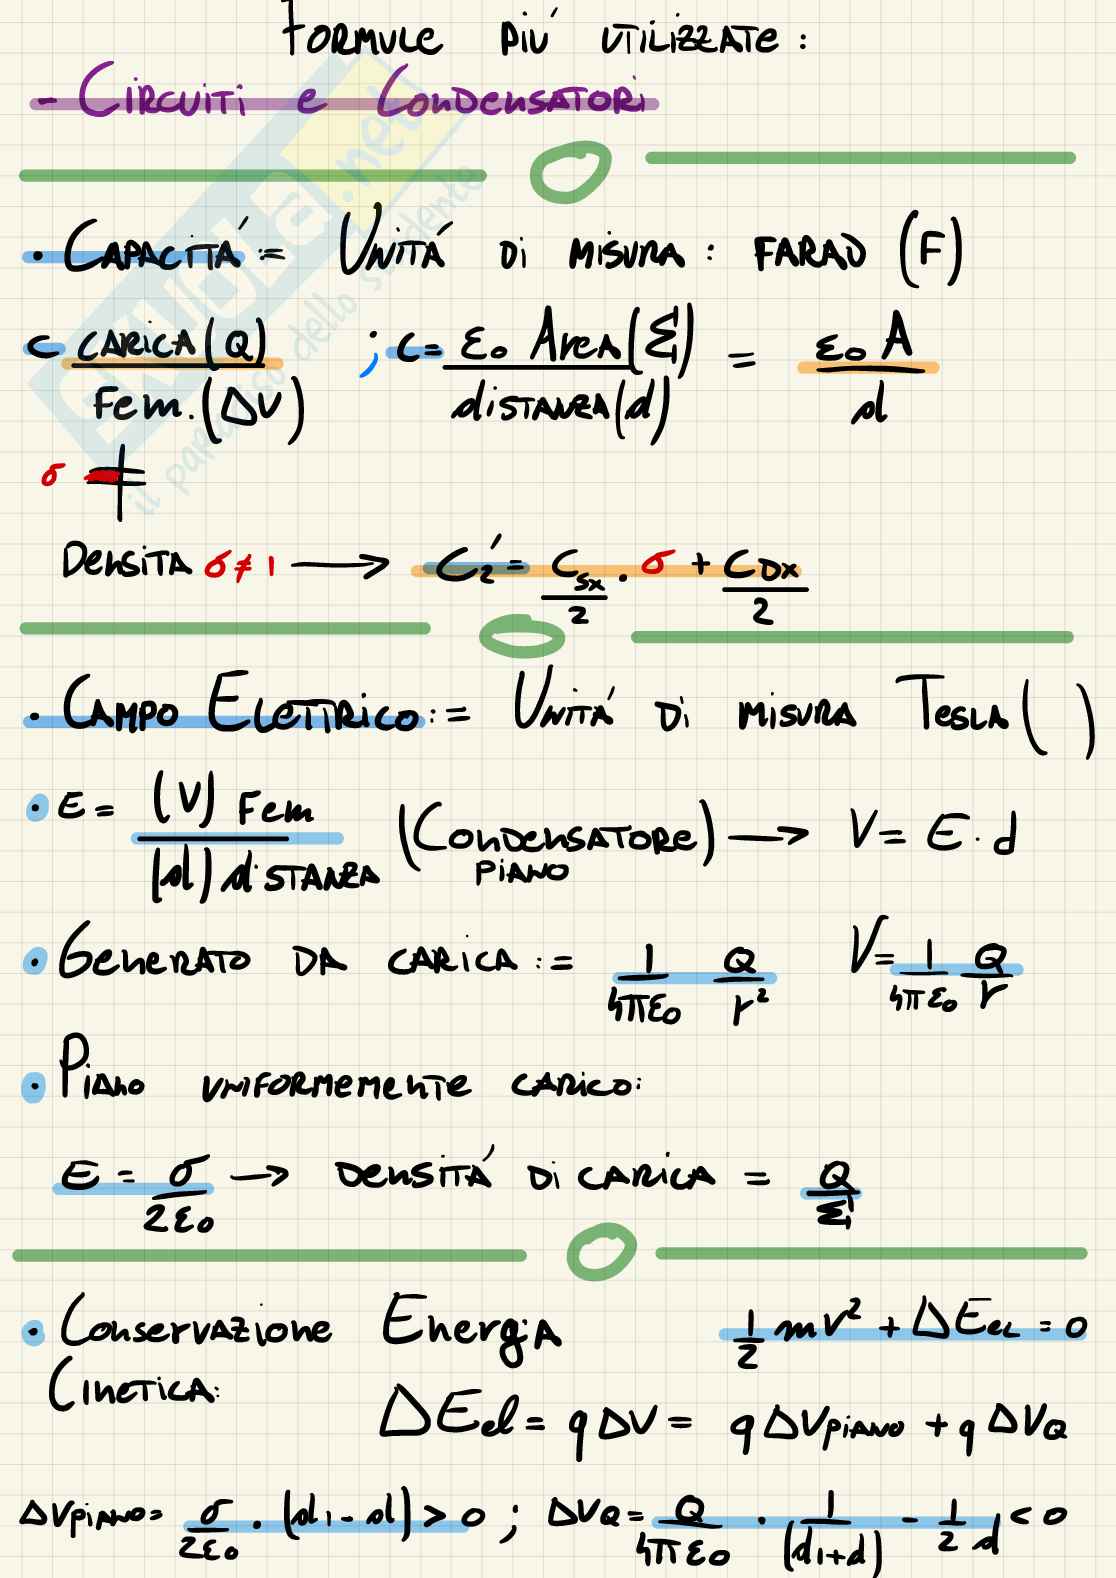 FORMULE PIÙ UTILIZZATE:
- CIRCUITI e CONDENSATORI
• CAPACITÁ := UNITÁ DI MISURA: FARAD (F)
C CARICA(Q) / Fem.(ΔV) ; C = ε₀ Area(Σ) / DISTANZA(d) = ε₀ A / d
σ
DENSITA σ≠1 → C₂' = Csx/2 · σ + CDx/2
• CAMPO ELETTRICO := UNITÁ DI MISURA TESLA ( )
• E = (V) Fem / (d) dISTANZA (CONDENSATORE PIANO) → V = E · d
• GENERATO DA CARICA := 1/4πε₀ Q/r² V = 1/4πε₀ Q/r
• PIANO UNIFORMEMENTE CARICO:
E = σ/2ε₀ → DENSITÁ DI CARICA = Q/Σ
• CONSERVAZIONE ENERGIA 1/2 mv² + ΔEEL = 0
CINETICA:
ΔEel = qΔV = qΔVPIANO + qΔVQ
ΔVPIANO = σ/2ε₀ · (d1 - d) > 0 ; ΔVQ = Q/4πε₀ · 1/(d1+d) - 1/2 d < 0
il paradiso dello studente